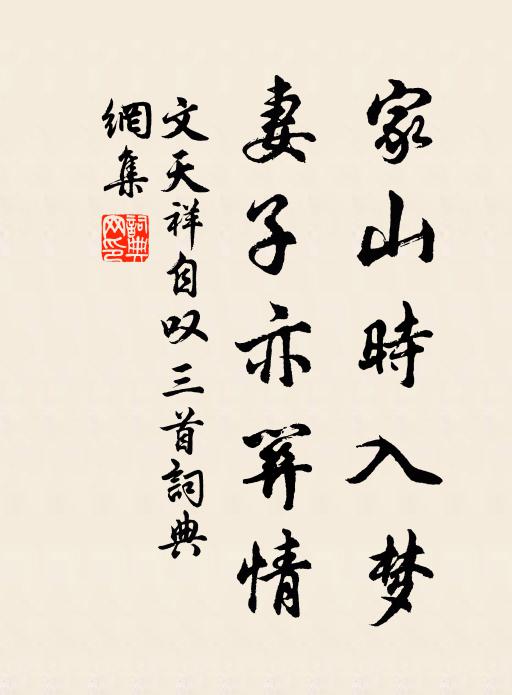 家山時入梦
妻子亦关情
文天祥自叹三首詞典
網集
詞典
网印